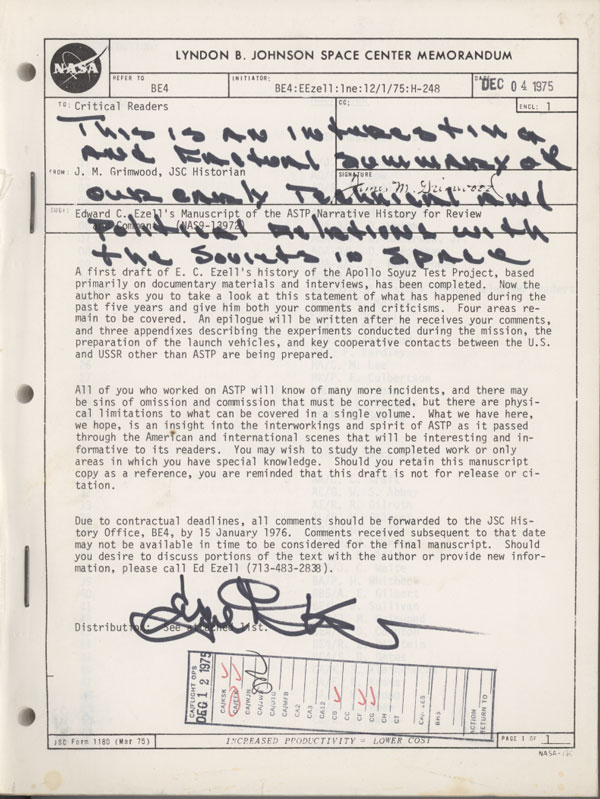 NASA
LYNDON B. JOHNSON SPACE CENTER MEMORANDUM
REFER TO
BE4
INITIATOR:
BE4:EEzell:lne:12/1/75:H-248
DATE
DEC 04 1975
TO: Critical Readers
CC:
ENCL: 1
THIS IS AN INTERESTING
AND FACTUAL SUMMARY OF
OUR EARLY TECHNICAL AND
POLITICAL RELATIONS WITH
THE SOVIETS IN SPACE
FROM: J. M. Grimwood, JSC Historian
SIGNATURE
James M. Grimwood
SUBJ: Edward C. Ezell's Manuscript of the ASTP Narrative History for Review
and Comment (NAS9-13972)
A first draft of E. C. Ezell's history of the Apollo Soyuz Test Project, based
primarily on documentary materials and interviews, has been completed. Now the
author asks you to take a look at this statement of what has happened during the
past five years and give him both your comments and criticisms. Four areas re-
main to be covered. An epilogue will be written after he receives your comments,
and three appendixes describing the experiments conducted during the mission, the
preparation of the launch vehicles, and key cooperative contacts between the U.S.
and USSR other than ASTP are being prepared.
All of you who worked on ASTP will know of many more incidents, and there may
be sins of omission and commission that must be corrected, but there are physi-
cal limitations to what can be covered in a single volume. What we have here,
we hope, is an insight into the interworkings and spirit of ASTP as it passed
through the American and international scenes that will be interesting and in-
formative to its readers. You may wish to study the completed work or only
areas in which you have special knowledge. Should you retain this manuscript
copy as a reference, you are reminded that this draft is not for release or ci-
tation.
Due to contractual deadlines, all comments should be forwarded to the JSC His-
tory Office, BE4, by 15 January 1976. Comments received subsequent to that date
may not be available in time to be considered for the final manuscript. Should
you desire to discuss portions of the text with the author or provide new infor-
mation, please call Ed Ezell (713-483-2838).
Distribution: See attached list.
CA/FLIGHT OPS
DEC 12 1975
CA/KSK
CA2
CA3
CA12
CB
CC
CF
CG
CH
CT
BH3
ACTION
RETURN TO
JSC Form 1180 (Mar 75)
INCREASED PRODUCTIVITY = LOWER COST
PAGE 1 OF 1
NASA-JSC